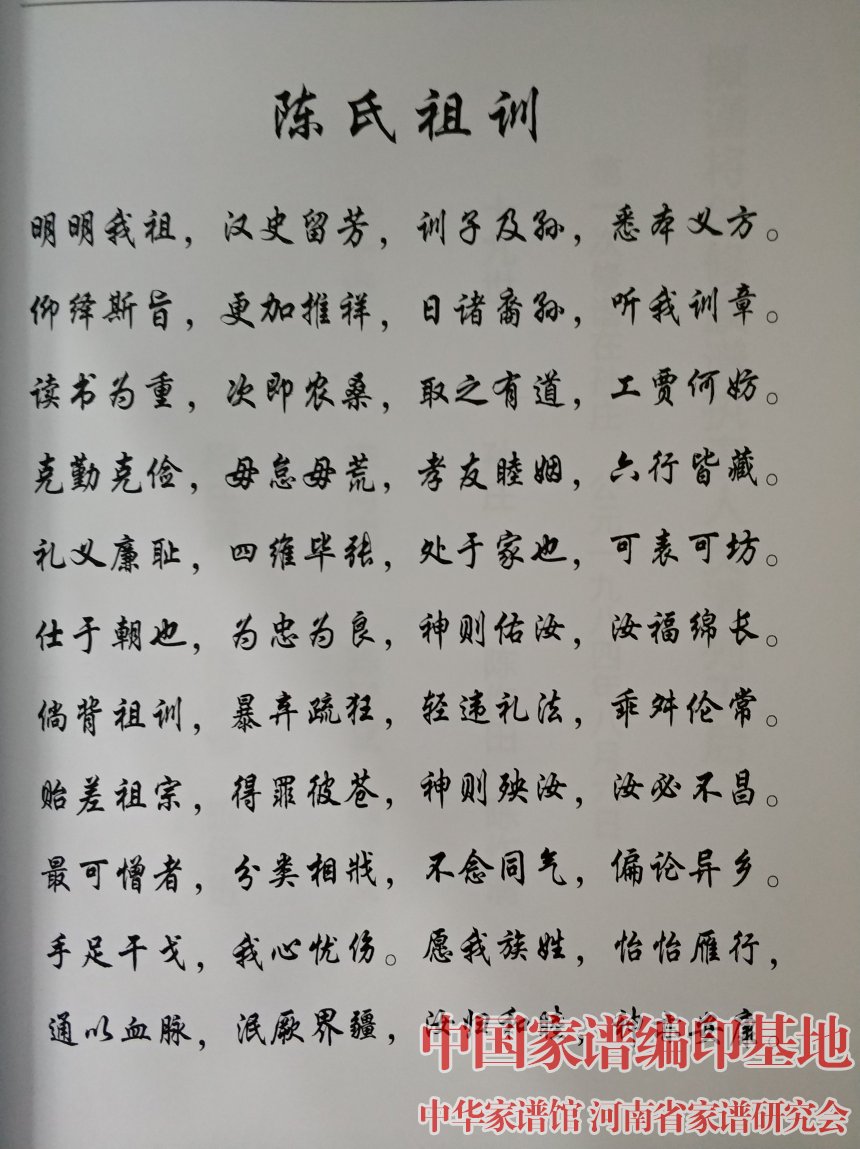 陈氏祖训
明明我祖，汉史留芳，训子及孙，悉本义方。
仰绎斯旨，更加推祥，日诸裔孙，听我训章。
读书为重，次即农桑，取之有道，工贾何妨。
克勤克俭，毋怠毋荒，孝友睦姻，六行皆藏。
礼义廉耻，四维毕张，处于家也，可表可坊。
仕于朝也，为忠为良，神则佑汝，汝福绵长。
倘背祖训，暴弃疏狂，轻违礼法，乖舛伦常。
贻差祖宗，得罪彼苍，神则殃汝，汝必不昌。
最可憎者，分类相戕，不念同气，偏论异乡。
手足干戈，我心忧伤。愿我族姓，怡怡雁行，
通以血脉，泯厥界疆，汝归和睦，
中国家谱编印基地
中华家谱馆 河南省家谱研究会